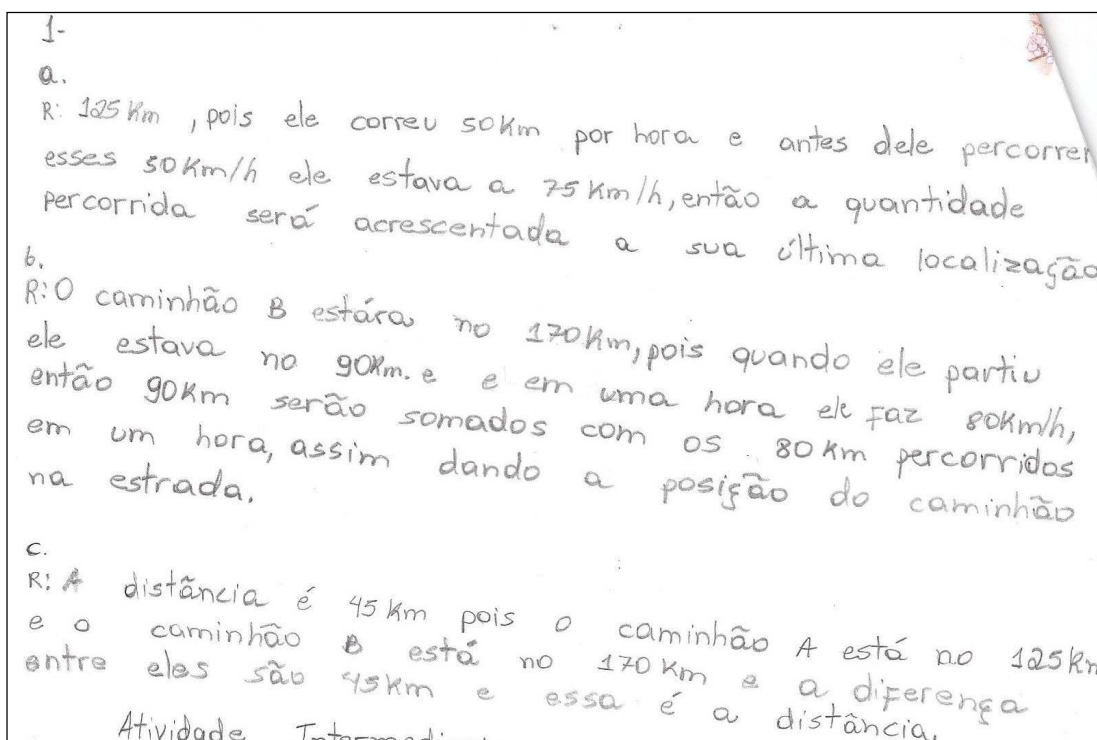 1-
a.
R: 125 Km, pois ele correu 50Km por hora e antes dele percorrer
esses 50 Km/h ele estava a 75 Km/h, então a quantidade
percorrida será acrescentada a sua última localização
b.
R: O caminhão B estára no 170 Km, pois quando ele partiu
ele estava no 90Km. e e em uma hora ele faz 80Km/h,
então 90Km serão somados com os 80 Km percorridos
em um hora, assim dando a posição do caminhão
na estrada.
c.
R: A distância é 45 Km pois o caminhão A está no 125Km
e o caminhão B está no 170 Km e a diferença
entre eles são 45Km e essa é a distância.
Atividade